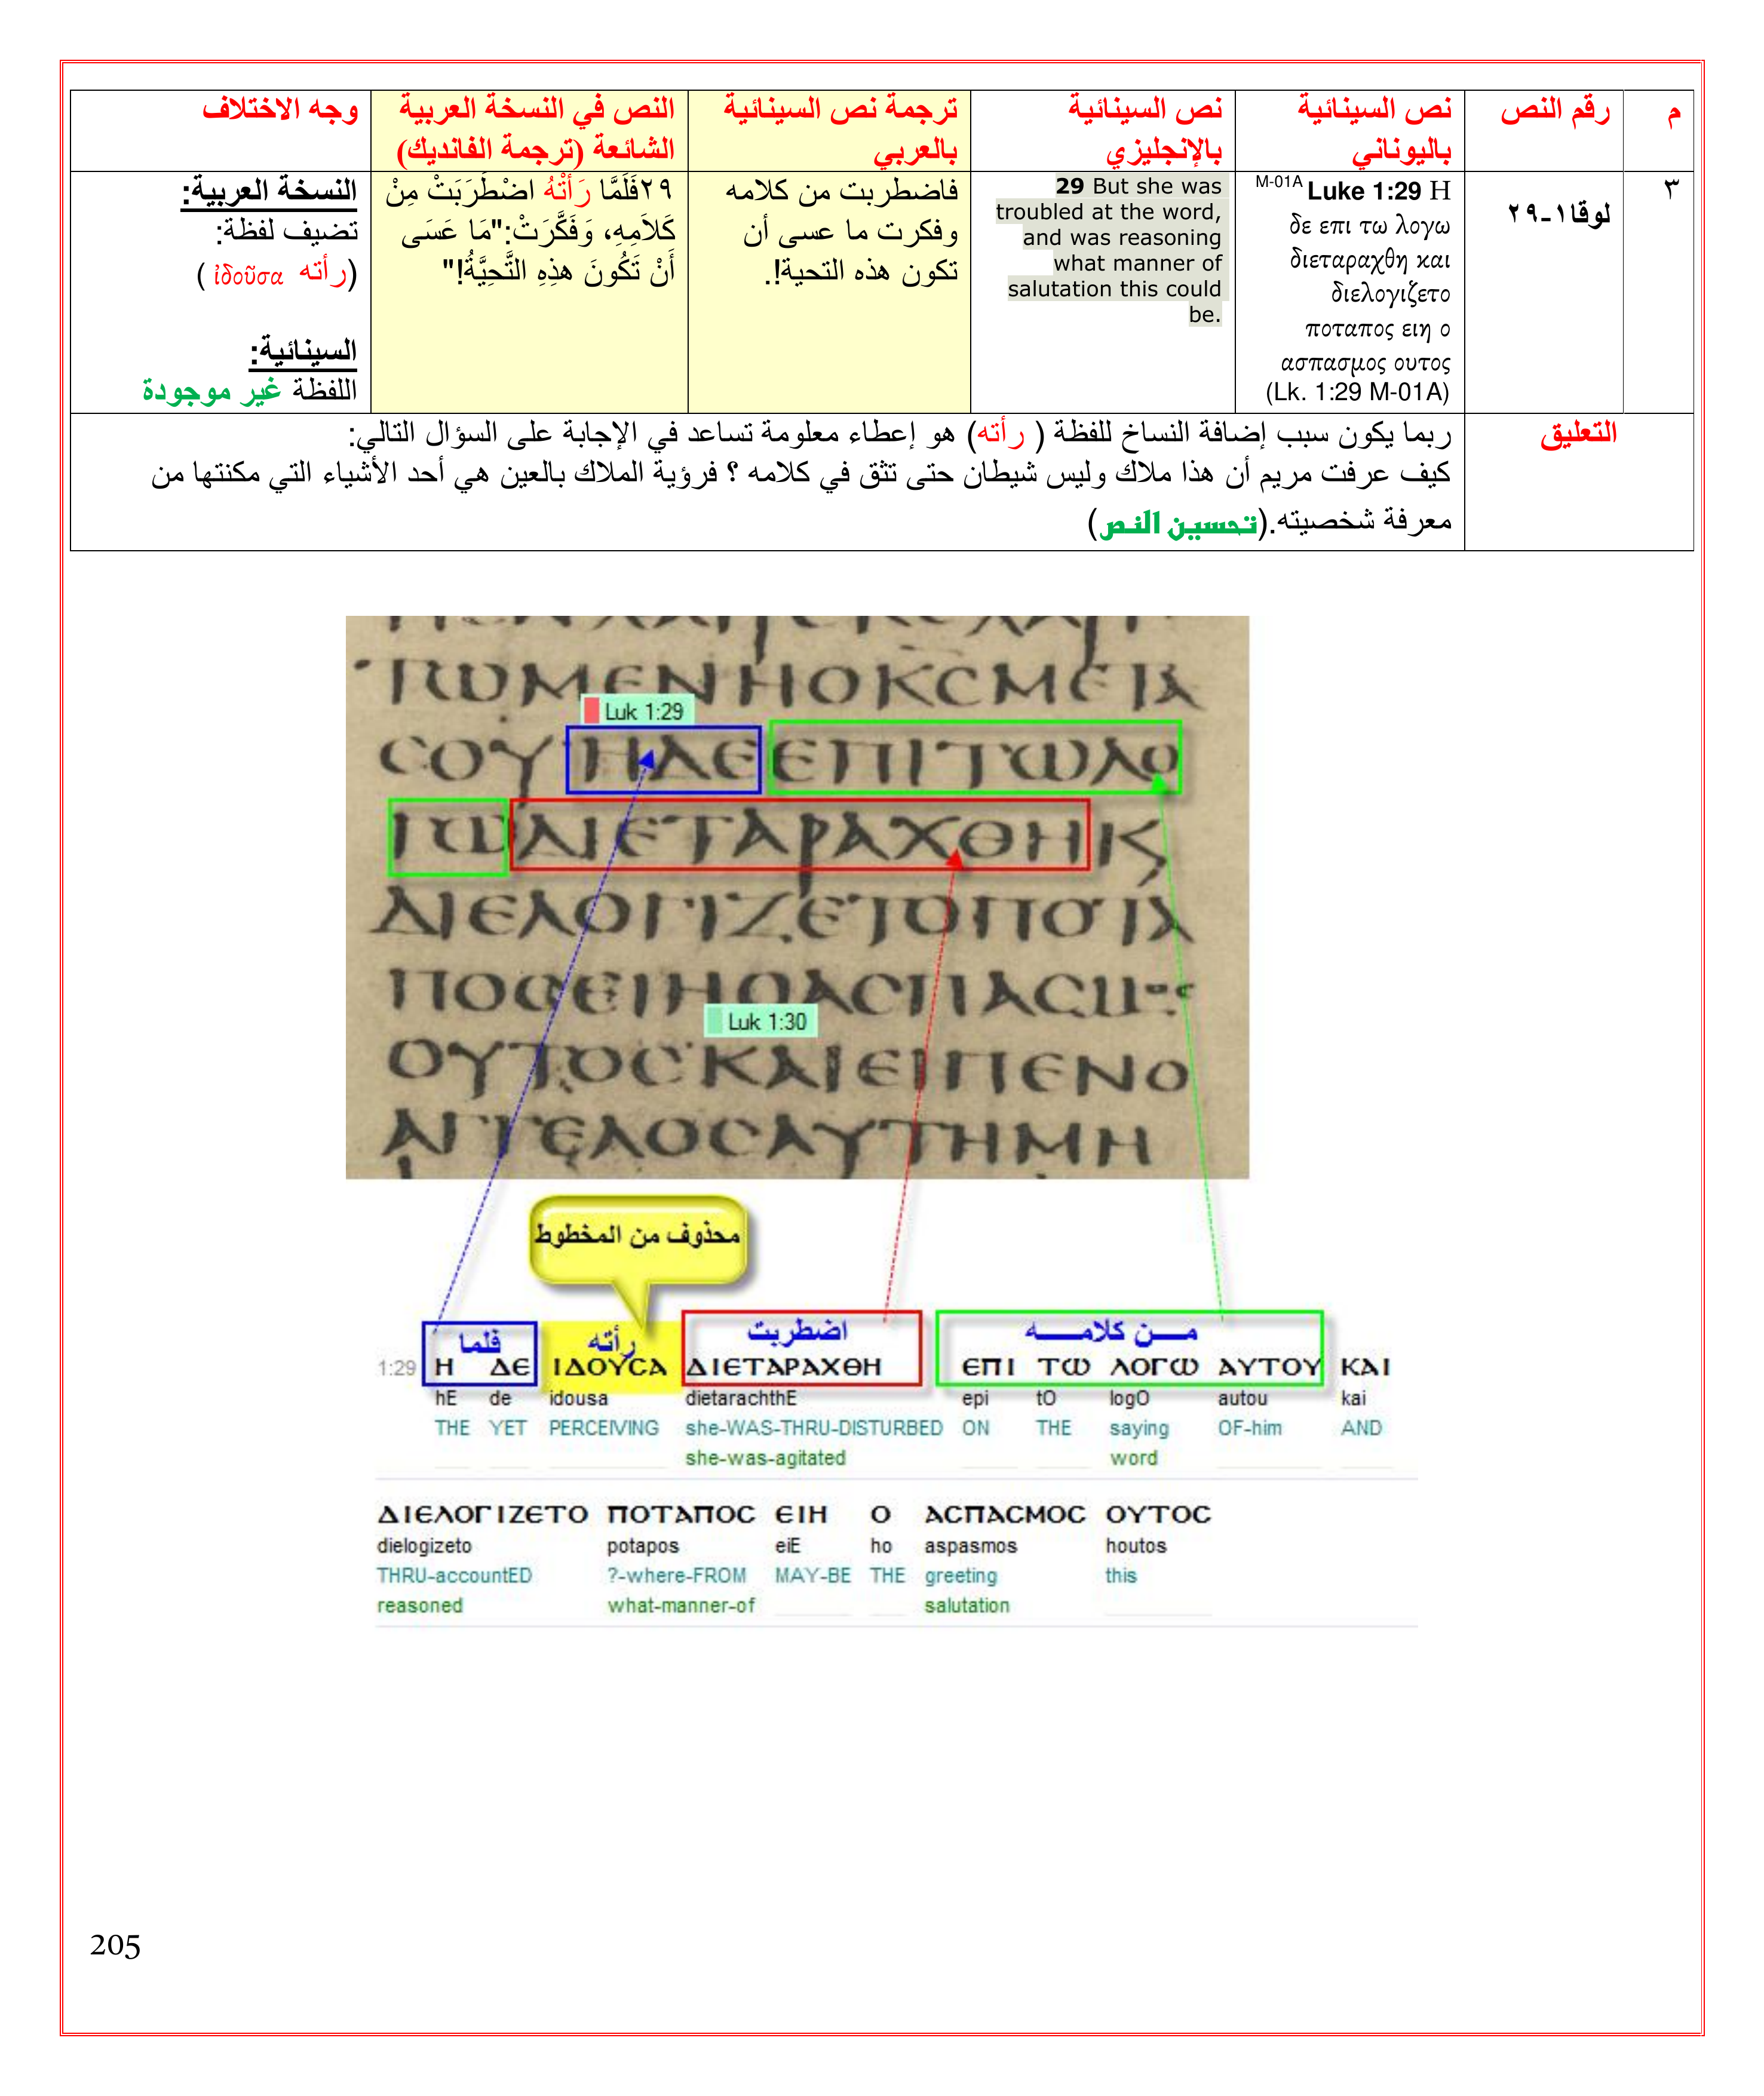 م
رقم النص
نص السينائية
باليوناني
نص السينائية
بالإنجليزي
ترجمة نص السينائية
بالعربي
النص في النسخة العربية
الشائعة (ترجمة الفانديك)
وجه الاختلاف
٣
لوقا١-٢٩
M-01A Luke 1:29 Η
δε επι τω λογω
διεταραχθη και
διελογιζετο
ποταπος ειη ο
ασπασμος ουτος
(Lk. 1:29 M-01A)
29 But she was
troubled at the word,
and was reasoning
what manner of
salutation this could
be.
فاضطربت من كلامه
وفكرت ما عسى أن
تكون هذه التحية!.
٢٩فَلَمَّا رَأَتْهُ اضْطَرَبَتْ مِنْ
كَلاَمِهِ، وَفَكَّرَتْ:"مَا عَسَى
أَنْ تَكُونَ هذِهِ التَّحِيَّةُ!"
النسخة العربية:
تضيف لفظة:
(رأته ἰδοῦσα )
السينائية:
اللفظة غير موجودة
التعليق
ربما يكون سبب إضافة النساخ للفظة ( رأته) هو إعطاء معلومة تساعد في الإجابة على السؤال التالي:
كيف عرفت مريم أن هذا ملاك وليس شيطان حتى تثق في كلامه ؟ فرؤية الملاك بالعين هي أحد الأشياء التي مكنتها من
معرفة شخصيته.(تحسين النص)
ΤΩΜΕΝΗΟΚCΜΕΤΑ
Luk 1:29
CΟΥΗΔΕΕΠΙΤΩΛΟ
ΓΩΔΙΕΤΑΡΑΧΘΗΚ
ΔΙΕΛΟΓΙΖΕΤΟΠΟΤΑ
ΠΟCΕΙΗΟΑCΠΑCΜΟC
Luk 1:30
ΟΥΤΟCΚΑΙΕΙΠΕΝΟ
ΑΓΓΕΛΟCΑΥΤΗΜΗ
محذوف من المخطوط
فلما رأته اضطربت من كلامه
1:29 Η ΔΕ ΙΔΟΥCΑ ΔΙΕΤΑΡΑΧΘΗ ΕΠΙ ΤΩ ΛΟΓΩ ΑΥΤΟΥ ΚΑΙ
hE de idousa dietarachthE epi tO logO autou kai
THE YET PERCEIVING she-WAS-THRU-DISTURBED ON THE saying OF-him AND
she-was-agitated word
ΔΙΕΛΟΓΙΖΕΤΟ ΠΟΤΑΠΟC ΕΙΗ Ο ΑCΠΑCΜΟC ΟΥΤΟC
dielogizeto potapos eiE ho aspasmos houtos
THRU-accountED ?-where-FROM MAY-BE THE greeting this
reasoned what-manner-of salutation
205